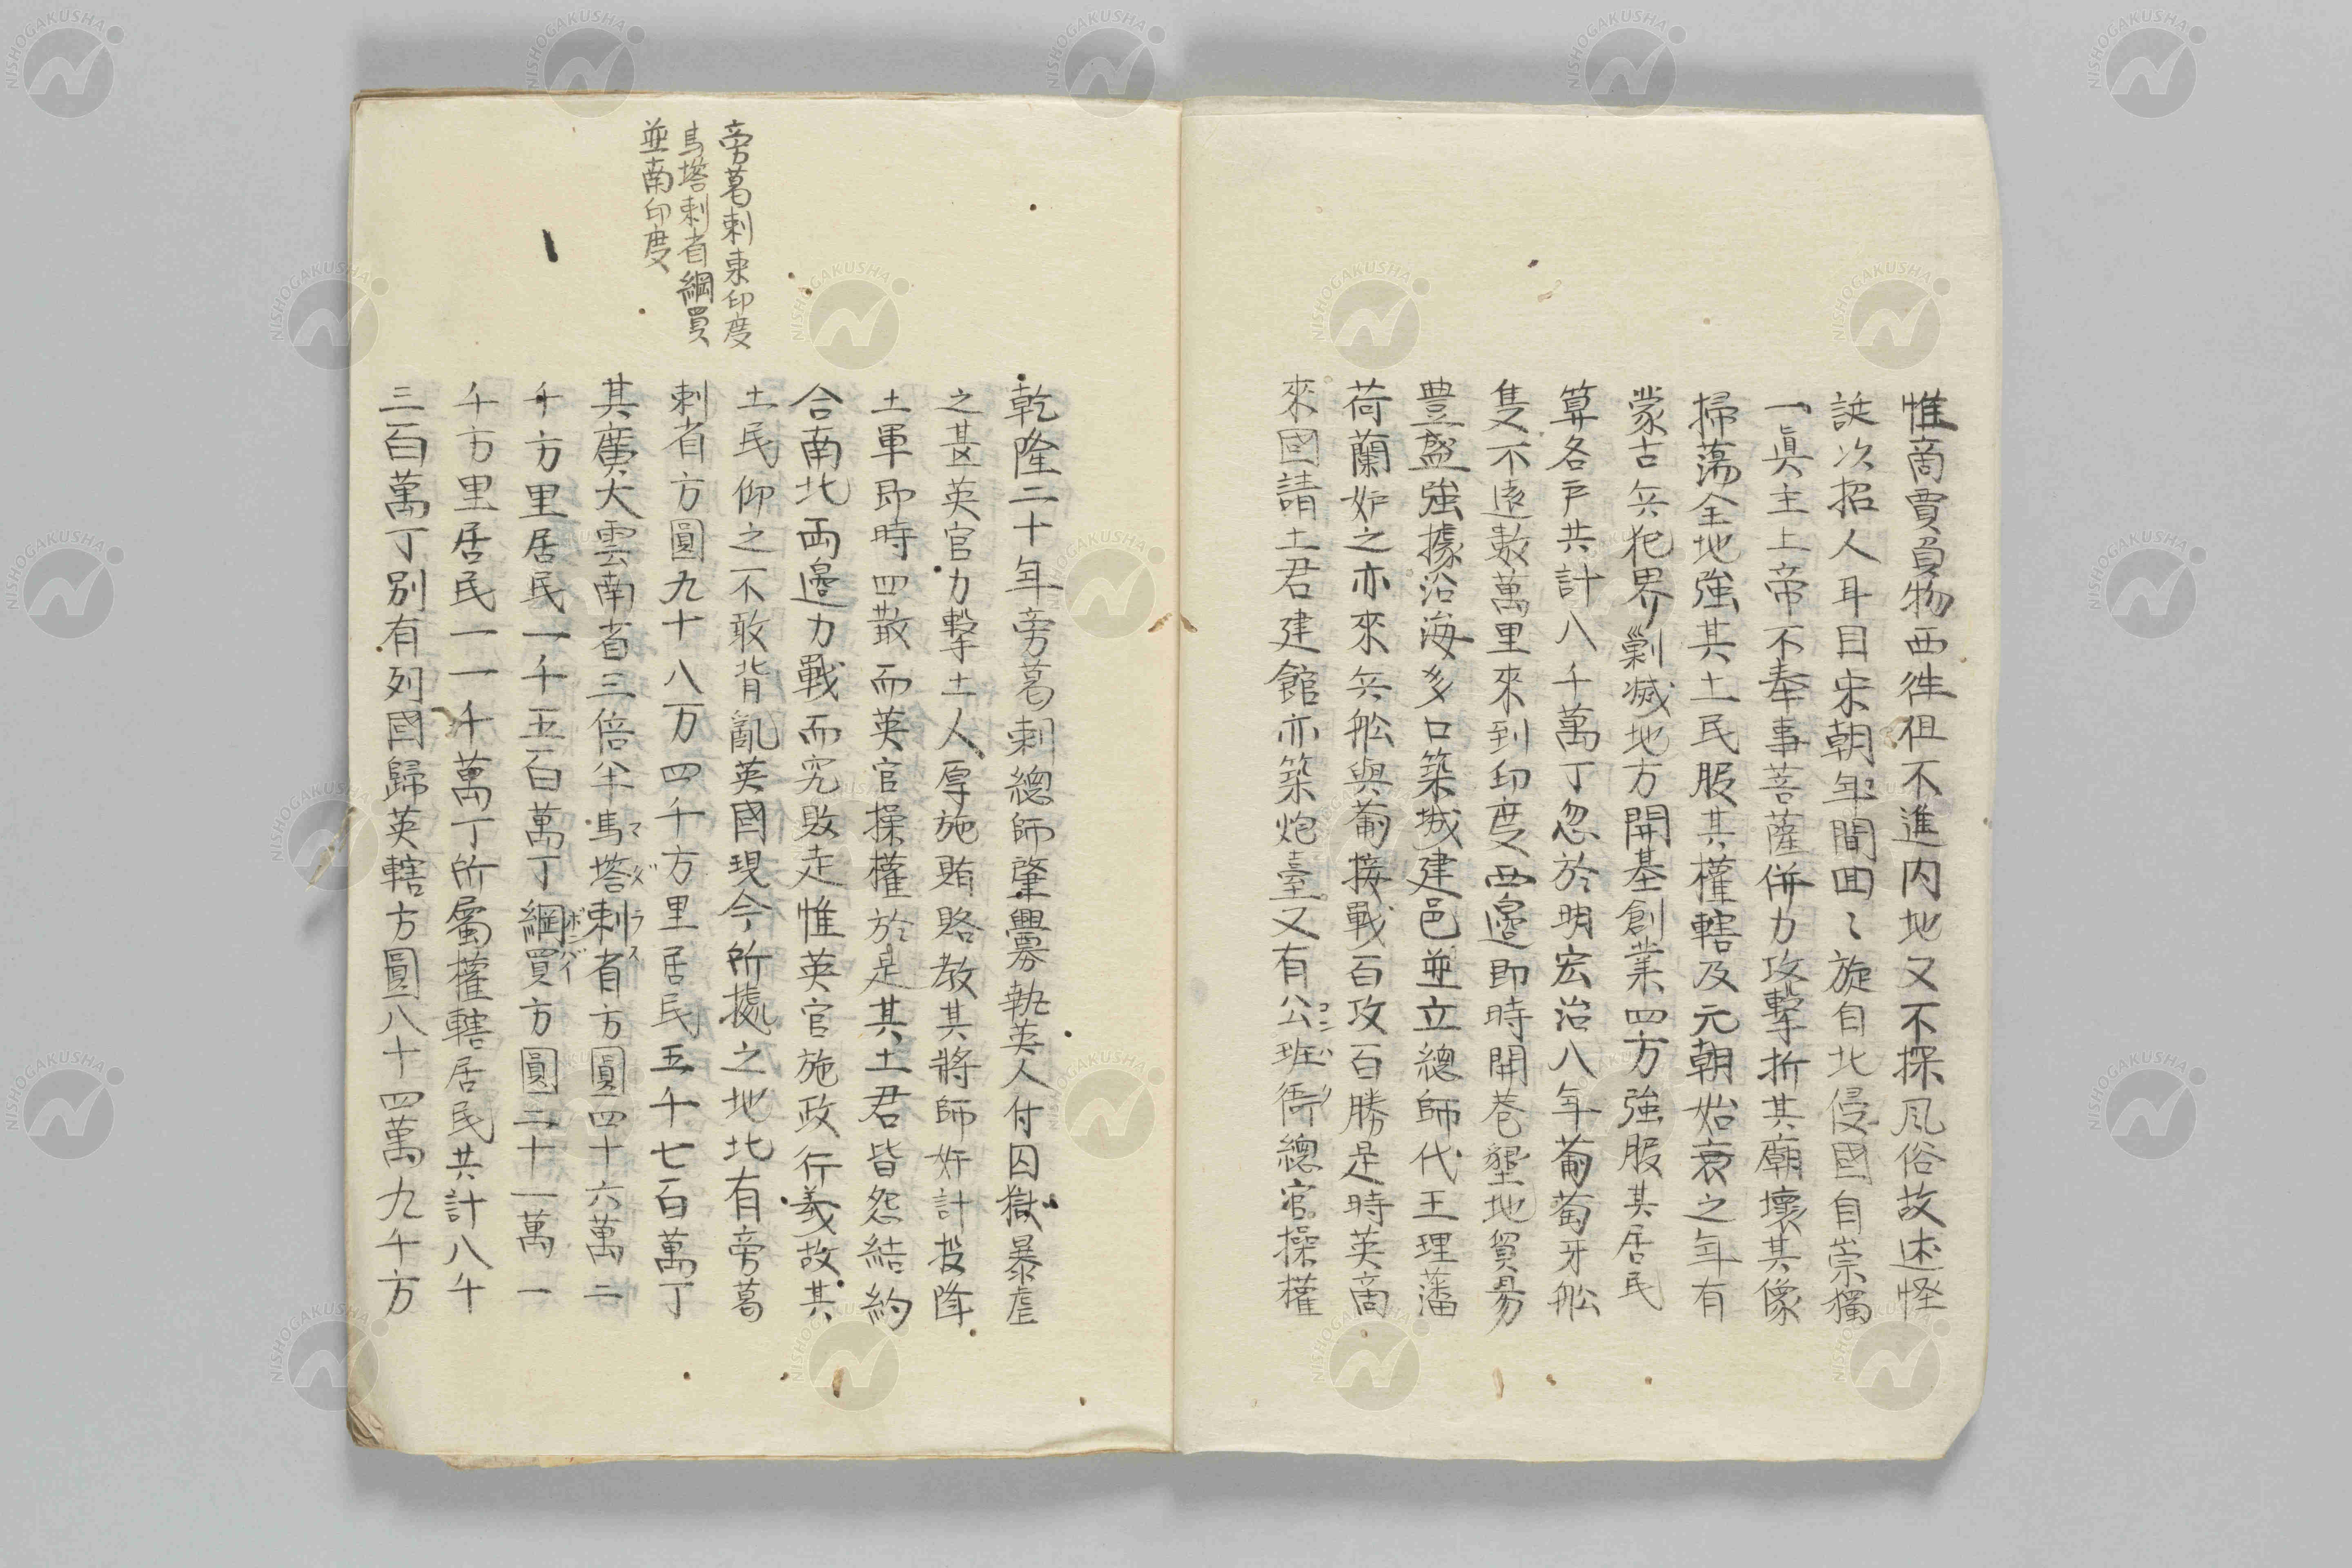 惟商賈負物西徃徂不進内地又不探風俗故述怪
誕次招人耳目宋朝年間囬〻旋自北侵國自崇獨
一眞主上帝不奉事菩薩併力攻擊折其廟壞其像
掃蕩全地強其土民服其權轄及元朝始衰之年有
蒙古兵犯界剿滅地方開基創業四方強服其居民
算各戸共計八千萬丁忽於明宏治八年葡萄牙舩
隻不遠數萬里來到印度西邉即時開巷墾地貿易
豊盛強據沿海多口築城建邑並立總師代王理藩
荷蘭妒之亦來兵舩與葡接戰百攻百勝是時英商
來國請土君建館亦築炮臺又有公班衙總官操權
コンハ ノ
旁葛剌東印度
馬塔剌省綱買
並南印度
乾隆二十年旁葛剌總師肇釁募執英人付囚獄暴虐
之甚英官力擊土人厚施賄賂教其將師奸計投降
土軍即時四散而英官操權於是其土君皆怨結約
合南北両邉力戰而究敗走惟英官施政行義故其
土民仰之不敢背亂英國現今所據之地北有旁葛
剌省方圓九十八万四千方里居民五千七百萬丁
其廣大雲南省三倍半馬塔剌省方圓四十六萬二
マダラス
千方里居民一千五百萬丁綱買方圓三十一萬一
ボンバイ
千方里居民一一千萬丁所屬權轄居民共計八千
三百萬丁別有列國歸英轄方圓八十四萬九千方
NISHOGAKUSHA